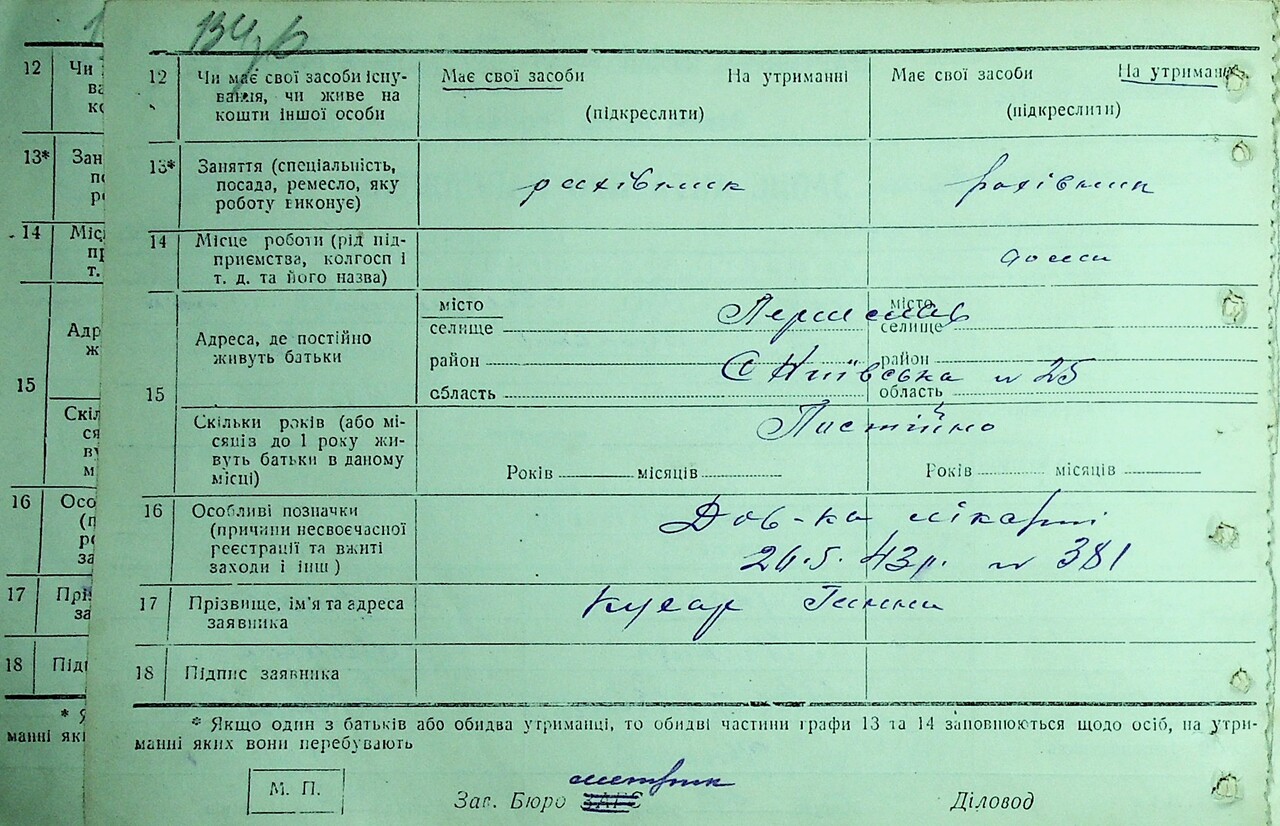 12
Чи має свої засоби існу-
вання, чи живе на
кошти іншої особи
Має свої засоби
На утриманні
(підкреслити)
Має свої засоби
На утриманні
(підкреслити)
13*
Заняття (спеціальність,
посада, ремесло, яку
роботу виконує)
рахівник
рахівник
14
Місце роботи (рід під-
приємства, колгосп і
т. д. та його назва)
15
Адреса, де постійно
живуть батьки
місто
селище
район
область
місто
селище
район
область
Київська № 25
Скільки років (або мі-
сяців до 1 року жи-
вуть батьки в даному
місці)
Постійно
Років місяців
Років місяців
16
Особливі позначки
(причини несвоєчасної
реєстрації та вжиті
заходи і інш )
Дов-ка лікарні
26.5. 43р. № 381
17
Прізвище, ім'я та адреса
заявника
Кусар Ганна
18
Підпис заявника
* Якщо один з батьків або обидва утриманці, то обидві частини графи 13 та 14 заповнюються щодо осіб, на утри-
манні яких вони перебувають
М. П.
метрик
Зав. Бюро ЗАГС
Діловод
12
Чи
ва
ко
13*
Зан
по
ро
14
Міс
пр
т.
15
Адр
ж
Скіл
ся
ву
м
16
Осо
(п
ре
за
17
Прі
за
18
Підп
манні які